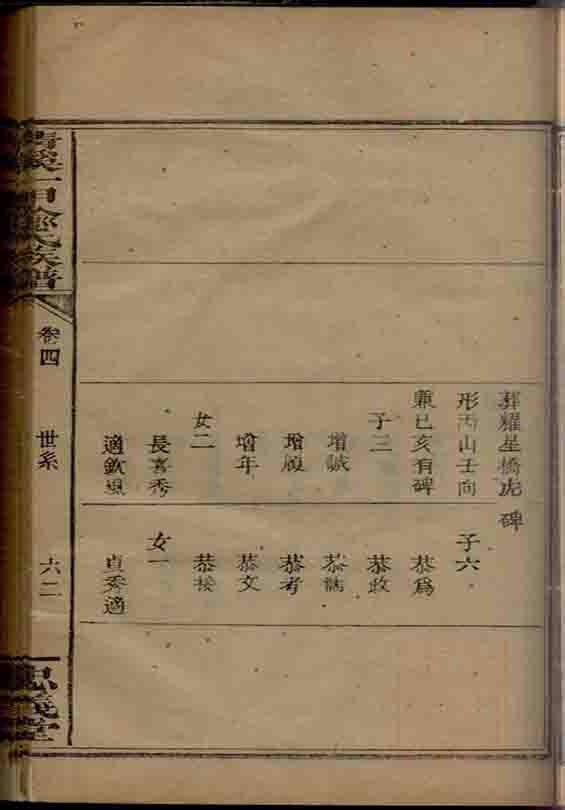 葬耀星橋虎
形丙山壬向
兼巳亥有碑
子三
增誠
增履
增年
女二
長喜秀
適歐恩
碑
子六
恭為
恭政
恭誥
恭考
恭文
恭接
女一
貞秀適
族譜
卷四
世系
六二
忠義堂